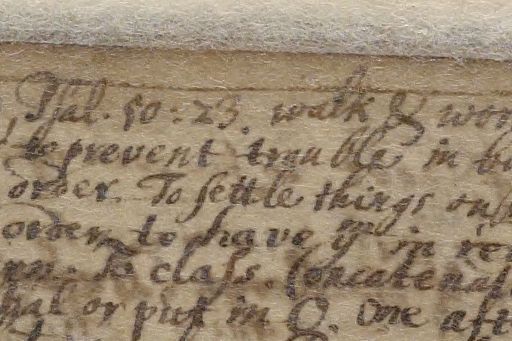 Psal. 50: 23. walk & wor
to prevent trouble in b
order. To settle things on
order to have ym in re
To class. Concatena
or put in O. One aft